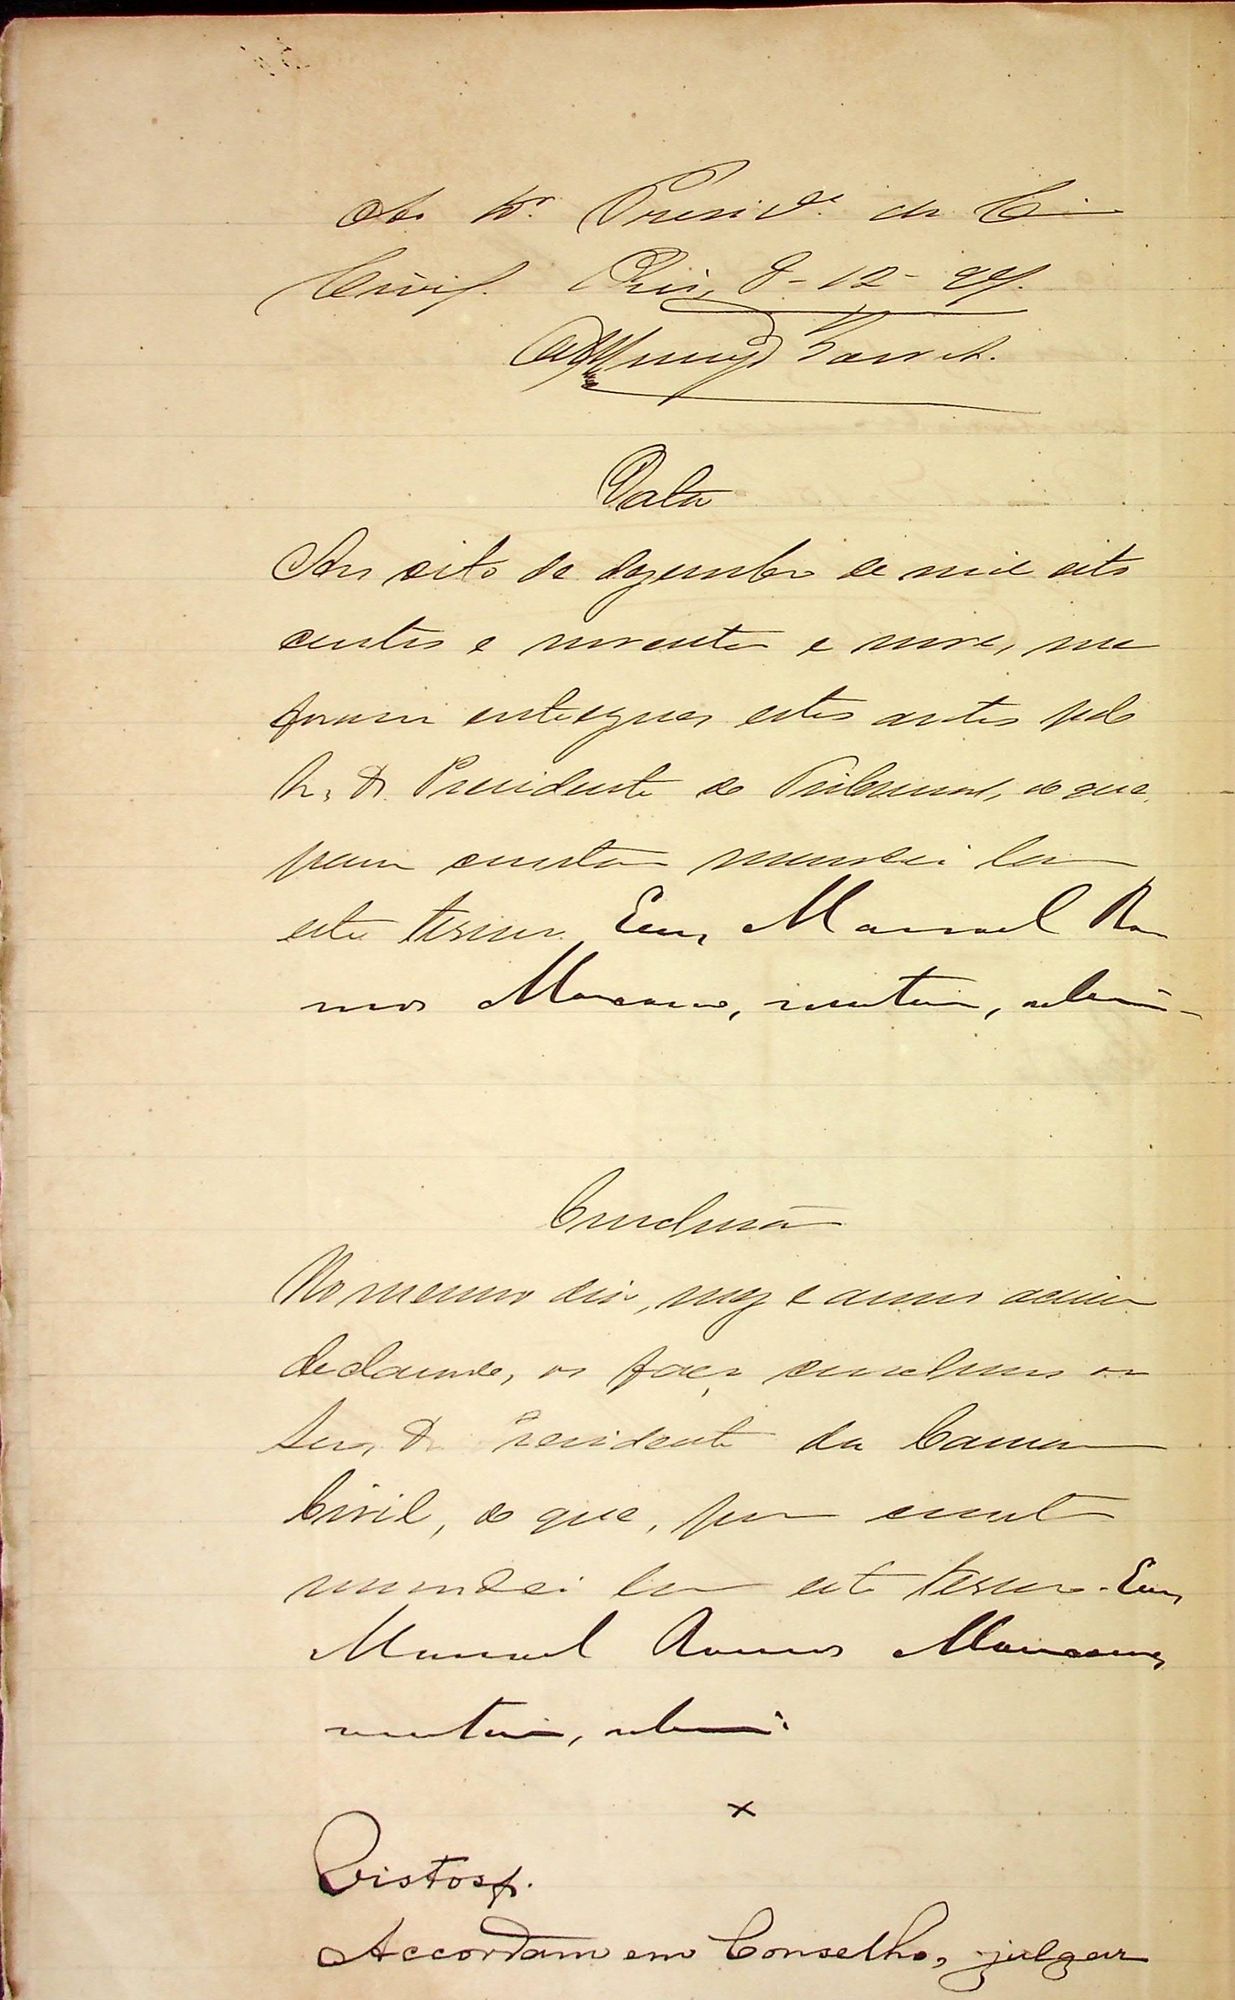 Ao Dr. Presid.e da C.
Civil. Rio, 8-12-99.
Data
Aos oito de dezembro de mil oito
centos e noventa e nove, me
foram entregues estes autos pelo
Sr. Dr. Presidente do Tribunal, do que,
para constar mandei lavrar
este termo. Eu, Manoel Ra
mos Moncorvo, escrivão, subscrevi
Conclusão
No mesmo dia, mez e anno acima
declarado, os faço conclusos ao
Snr. Dr. Presidente da Camara
Civil, do que, para constar
mandei lavrar este termo. Eu,
Manoel Ramos Moncorvo,
escrivão, subscrevi
x
Vistos,
Accordam em Conselho, julgar